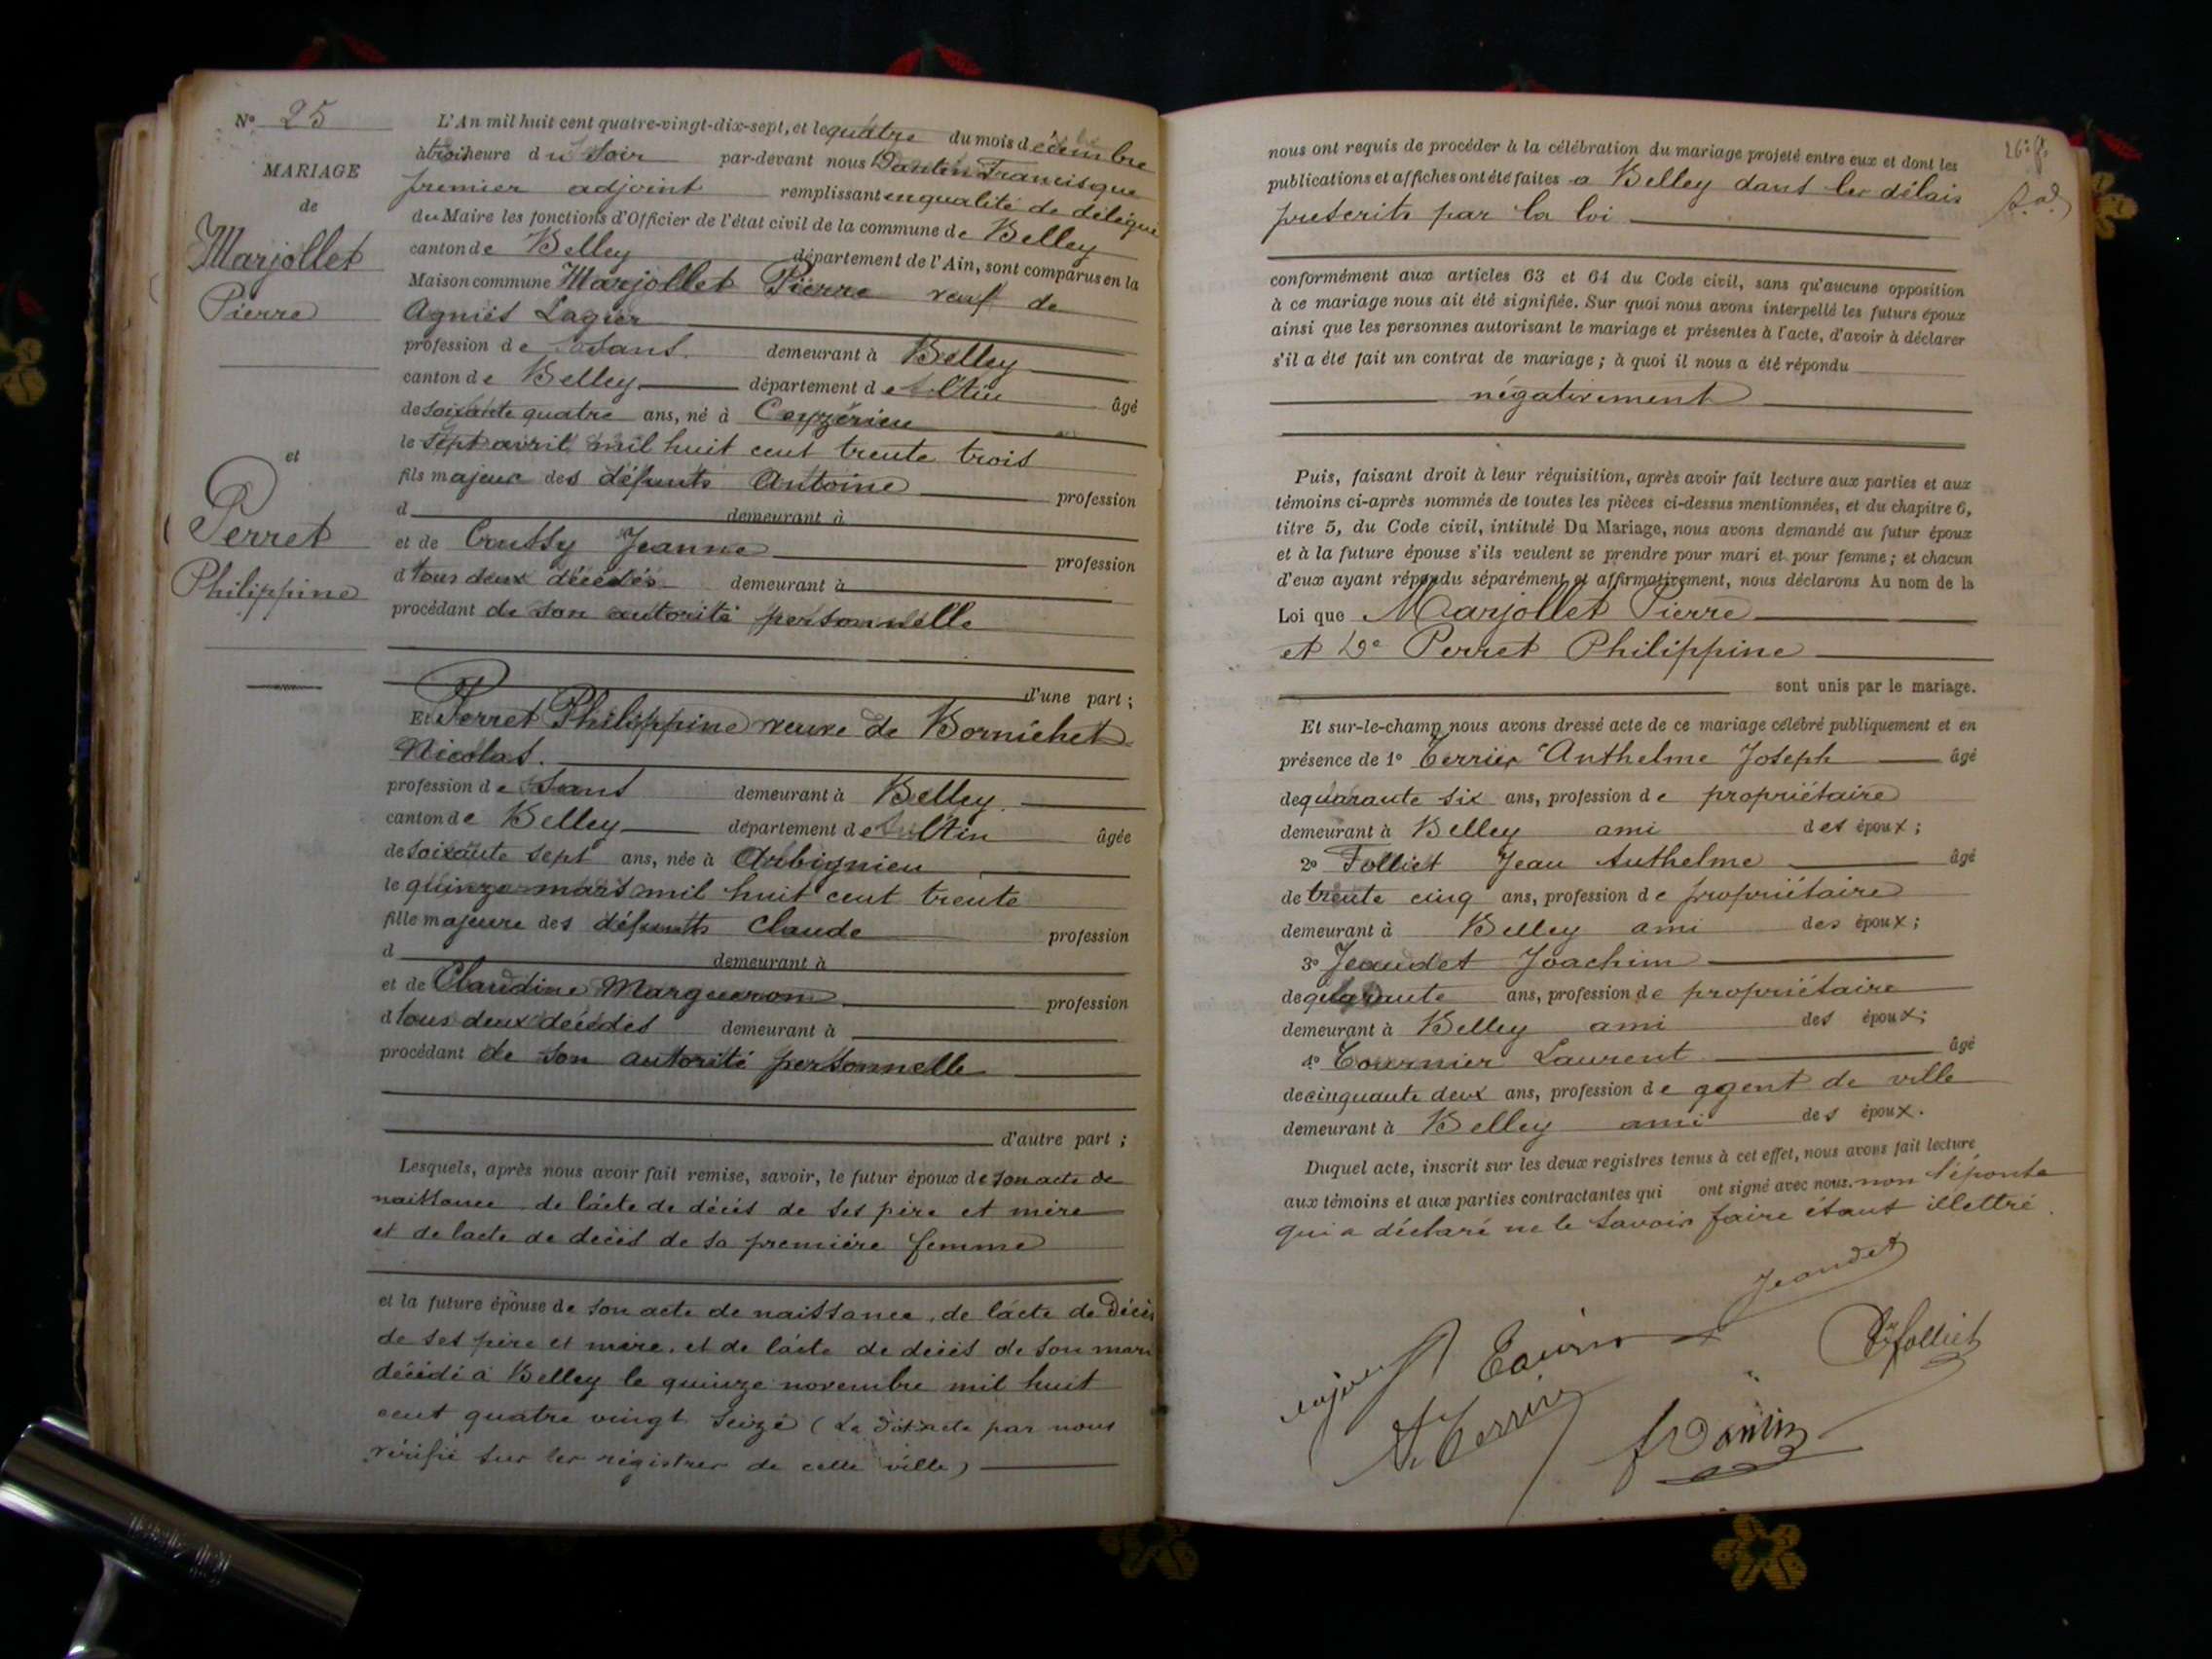 N° 25
MARIAGE
de
Marjollet
Pierre
et
Perret
Philippine
L'An mil huit cent quatre-vingt-dix-sept, et le quatre du mois décembre
à trois heure du Soir par-devant nous Dantin Francisque
premier adjoint remplissant en qualité de délégué
du Maire les fonctions d'Officier de l'état civil de la commune de Belley
canton de Belley département de l'Ain, sont comparus en la
Maison commune Marjollet Pierre veuf de
Agniès Lagier
profession de sans demeurant à Belley
canton de Belley département de l'Ain âgé
de soixante quatre ans, né à Ceyzérieu
le sept avril mil huit cent trente trois
fils majeur des défunts Antoine profession
d demeurant à
et de Coussy Jeanne profession
d tous deux décédés demeurant à
procédant de son autorité personnelle
d'une part ;
Et Perret Philippine veuve de Bornichet
Nicolas.
profession de Sans demeurant à Belley
canton de Belley département de l'Ain âgée
de soixante sept ans, née à Arbignieu
le quinze mars mil huit cent trente
fille majeure des défunts Claude profession
d demeurant à
et de Claudine Margueron profession
d tous deux décédés demeurant à
procédant de son autorité personnelle
d'autre part ;
Lesquels, après nous avoir fait remise, savoir, le futur époux de son acte de
naissance de l'acte de décès de ses père et mère
et de l'acte de décès de sa première femme
et la future épouse de son acte de naissance, de l'acte de décès
de ses père et mère, et de l'acte de décès de son mari
décédé à Belley le quinze novembre mil huit
cent quatre vingt seize (Le dit acte par nous
vérifié sur les régistres de cette ville)
nous ont requis de procéder à la célébration du mariage projeté entre eux et dont les
publications et affiches ont été faites a Belley dans les délais
prescrits par la loi
conformément aux articles 63 et 64 du Code civil, sans qu'aucune opposition
à ce mariage nous ait été signifiée. Sur quoi nous avons interpellé les futurs époux
ainsi que les personnes autorisant le mariage et présentes à l'acte, d'avoir à déclarer
s'il a été fait un contrat de mariage ; à quoi il nous a été répondu
négativement
Puis, faisant droit à leur réquisition, après avoir fait lecture aux parties et aux
témoins ci-après nommés de toutes les pièces ci-dessus mentionnées, et du chapitre 6,
titre 5, du Code civil, intitulé Du Mariage, nous avons demandé au futur époux
et à la future épouse s'ils veulent se prendre pour mari et pour femme ; et chacun
d'eux ayant répondu séparément et affirmativement, nous déclarons Au nom de la
Loi que Marjollet Pierre
et De Perret Philippine
sont unis par le mariage.
Et sur-le-champ nous avons dressé acte de ce mariage célébré publiquement et en
présence de 1° Terrier Anthelme Joseph âgé
de quarante six ans, profession de propriétaire
demeurant à Belley ami des époux ;
2° Folliet Jean Anthelme âgé
de trente cinq ans, profession de propriétaire
demeurant à Belley ami des époux ;
3° Jeandet Joachim
de quarante ans, profession de propriétaire
demeurant à Belley ami des époux ;
4° Tournier Laurent âgé
de cinquante deux ans, profession de agent de ville
demeurant à Belley ami des époux.
Duquel acte, inscrit sur les deux registres tenus à cet effet, nous avons fait lecture
aux témoins et aux parties contractantes qui ont signé avec nous. non l'épouse
qui a déclaré ne le savoir faire étant illettré.
Jeandet
Folliet
A. Terrier
F Dantin